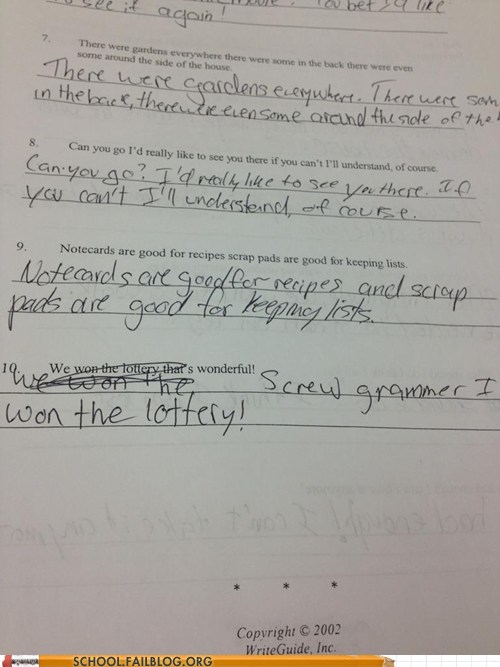 see it again! You bet I'd like
7. There were gardens everywhere there were some in the back there were even
some around the side of the house.
There were gardens everywhere. There were som
in the back, there were even some around the side of the
8. Can you go I'd really like to see you there if you can't I'll understand, of course.
Can you go? I'd really like to see you there. If
you can't I'll understand, of course.
9. Notecards are good for recipes scrap pads are good for keeping lists.
Notecards are good for recipes and scrap
pads are good for keeping lists.
10. We won the lottery that's wonderful!
We won the Screw grammer I
won the lottery!
* * *
Copyright © 2002
WriteGuide, Inc.
SCHOOL.FAILBLOG.ORG